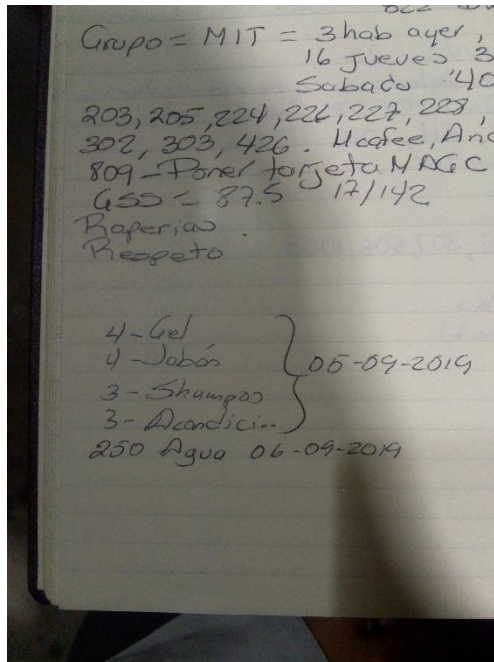 Grupo = MIT = 3 hab ayer,
16 jueves 3
Sabado 40
203, 205, 224, 226, 227, 228,
302, 303, 426. Mcafee, And
809 - Poner tarjeta MAGC
GSS = 87.5 17/142
Roperias.
Respeto
4 - Gel
4 - Jabón
05-09-2019
3 - Shampoo
3 - Acondici..
250 Agua 06-09-2019